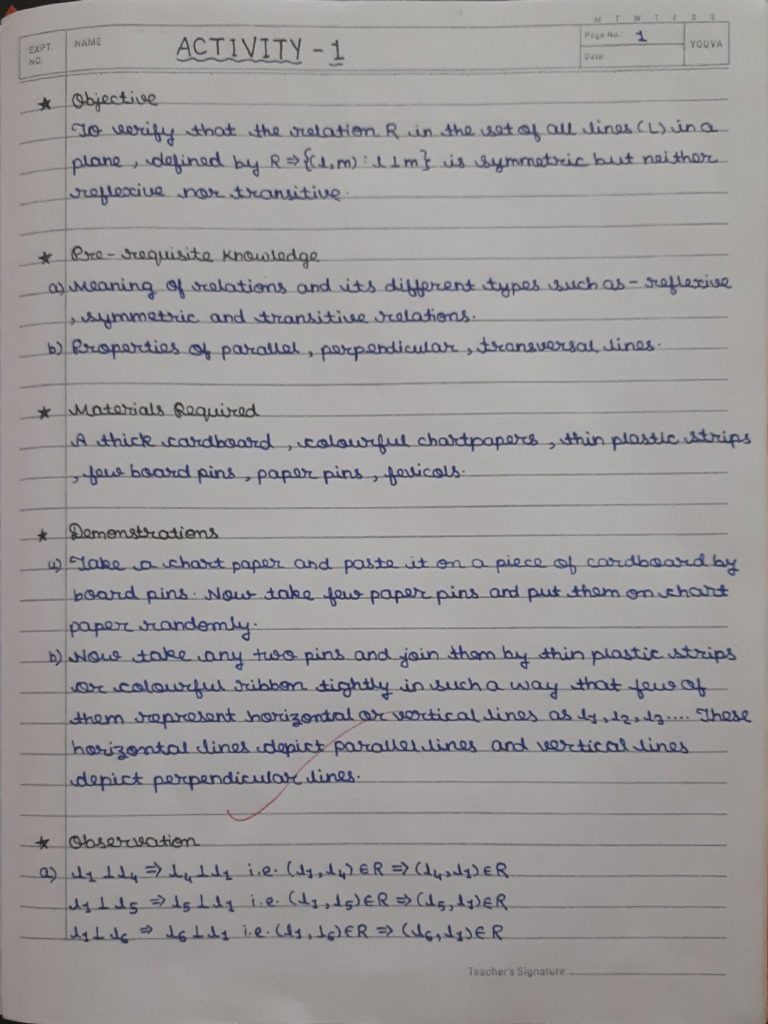 M T W T F S S
EXPT. NO.
NAME
ACTIVITY - 1
Page No.: 1
Date:
YOUVA
★ Objective
To verify that the relation R in the set of all lines (L) in a
plane, defined by R ⇒ {(l,m) : l ⊥ m} is symmetric but neither
reflexive nor transitive.
★ Pre-requisite Knowledge
a) Meaning of relations and its different types such as - reflexive
, symmetric and transitive relations.
b) Properties of parallel, perpendicular, transversal lines.
★ Materials Required
A thick cardboard, colourful chartpapers, thin plastic strips
, few board pins, paper pins, fevicols.
★ Demonstrations
a) Take a chart paper and paste it on a piece of cardboard by
board pins. Now take few paper pins and put them on chart
paper randomly.
b) Now take any two pins and join them by thin plastic strips
or colourful ribbon tightly in such a way that few of
them represent horizontal or vertical lines as l₁, l₂, l₃.... These
horizontal lines depict parallel lines and vertical lines
depict perpendicular lines.
★ Observation
a) l₁ ⊥ l₄ ⇒ l₄ ⊥ l₁ i.e. (l₁, l₄) ∈ R ⇒ (l₄, l₁) ∈ R
l₁ ⊥ l₅ ⇒ l₅ ⊥ l₁ i.e. (l₁, l₅) ∈ R ⇒ (l₅, l₁) ∈ R
l₁ ⊥ l₆ ⇒ l₆ ⊥ l₁ i.e. (l₁, l₆) ∈ R ⇒ (l₆, l₁) ∈ R
Teacher's Signature: